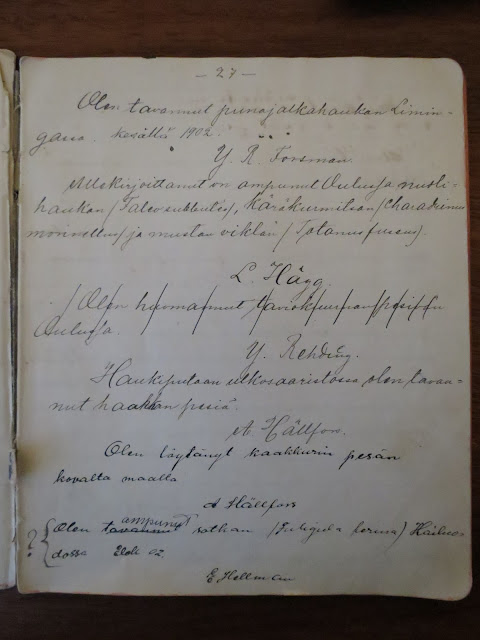 — 27 —
Olen tavannut punajalkahaukan Limin-
gassa kesällä 1902.
Y. R. Forsman.
Allekirjoittanut on ampunut Oulussa nuoli-
haukan (Falco subbuteo), Keräkurmitsan (Charadrius
morinellus) ja mustan viklan (Totanus fuscus).
L. Hägg
Olen huomannut taviokuurnan pesivän
Oulussa.
Y. Rehding.
Haukiputaan ulkosaaristossa olen tavan-
nut haahkan pesiä.
A. Hällfors.
Olen löytänyt kaakkurin pesän
kovalta maalta
A Hällfors
ampunut
? Olen tavannut sotkan (Fuligula ferina) Hailuo-
dossa Elok. 02.
E Hellman